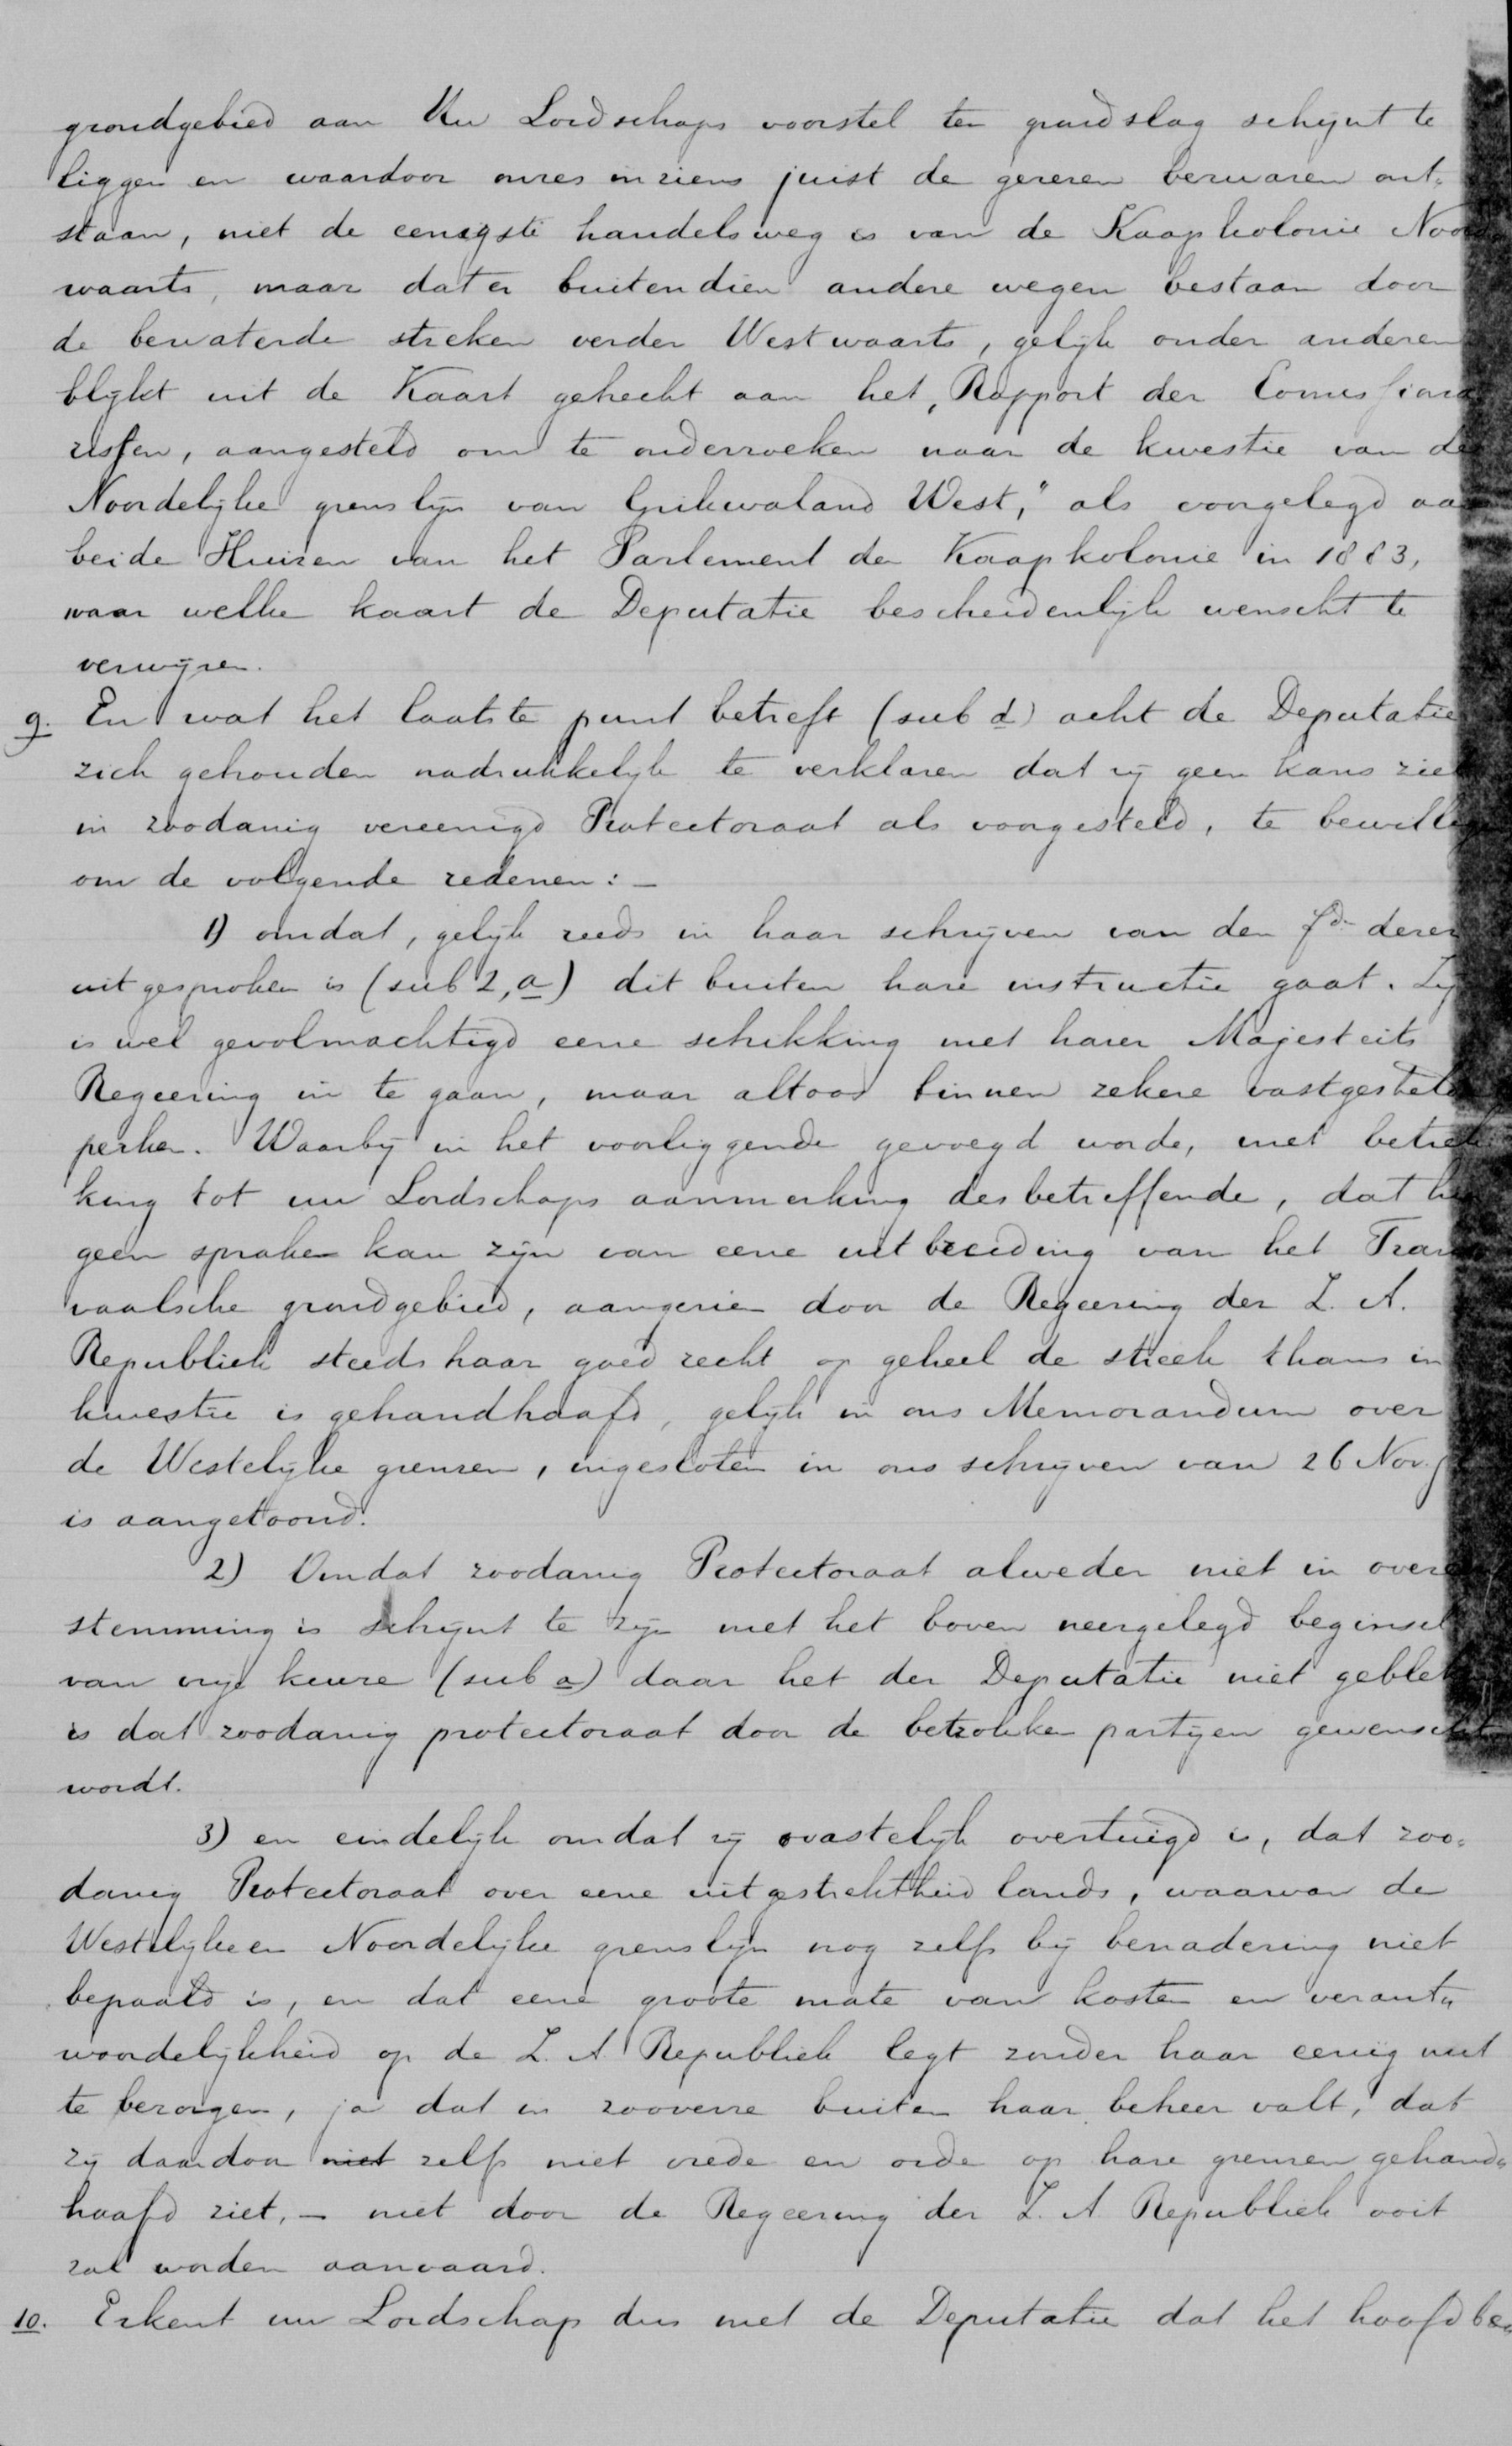 grondgebied aan Uw Lordschaps voorstel ten grondslag schijnt te
liggen en waardoor onzes inziens juist de gerezen bezwaren ont=
staan, niet de eenigste handelsweg is van de Kaapkolonie Noord
waarts, maar dat er buitendien andere wegen bestaan door
de bewaterde streken verder Westwaarts, gelijk onder anderen
blijkt uit de Kaart gehecht aan het „Rapport der Commissiona
rissen, aangesteld om te onderzoeken naar de kwestie van de
Noordelijke grenslijn van Grikwaland West," als voorgelegd aan
beide Huizen van het Parlement der Kaapkolonie in 1883,
naar welke kaart de Deputatie bescheidenlijk wenscht te
verwijzen.
9. En wat het laatste punt betreft (sub d) acht de Deputatie
zich gehouden nadrukkelijk te verklaren dat zij geen kans ziet
in zoodanig vereenigd Protectoraat als voorgesteld, te bewillig
om de volgende redenen: —
1) omdat, gelijk reeds in haar schrijven van den dezer
uitgesproken is (sub 2, a) dit buiten hare instructie gaat. Zij
is wel gevolmachtigd eene schikking met harer Majesteits
Regeering in te gaan, maar altoos binnen zekere vastgestelde
perken. Waarbij in het voorliggende gevoegd worde, met betrek
king tot uw Lordschaps aanmerking desbetreffende, dat hier
geen sprake kan zijn van eene uitbreiding van het Trans
vaalsche grondgebied, aangezien door de Regeering der Z. A.
Republiek steeds haar goed recht op geheel de streek thans in
kwestie is gehandhaafd, gelijk in ons Memorandum over
de Westelijke grenzen, ingesloten in ons schrijven van 26 Nov. jl
is aangetoond.
2) Omdat zoodanig Protectoraat alweder niet in overe
stemming is schijnt te zijn met het boven neergelegd beginsel
van vrije keuze (sub a) daar het der Deputatie niet geblek
is dat zoodanig protectoraat door de betrokken partijen gewenscht
wordt.
3) en eindelijk omdat zij vastelijk overtuigd is, dat zoo=
danig Protectoraat over eene uitgestrektheid lands, waarvan de
Westelijke en Noordelijke grenslijn nog zelfs bij benadering niet
bepaald is, en dat eene groote mate van kosten en verant=
woordelijkheid op de Z. A Republiek legt zonder haar eenig nut
te bezorgen, ja dat in zooverre buiten haar beheer valt, dat
zij daardoor niet zelfs niet vrede en orde op hare grenzen gehand=
haafd ziet, — niet door de Regeering der Z. A Republiek ooit
zal worden aanvaard.
10. Erkent uw Lordschap dus met de Deputatie dat het hoofdbe=